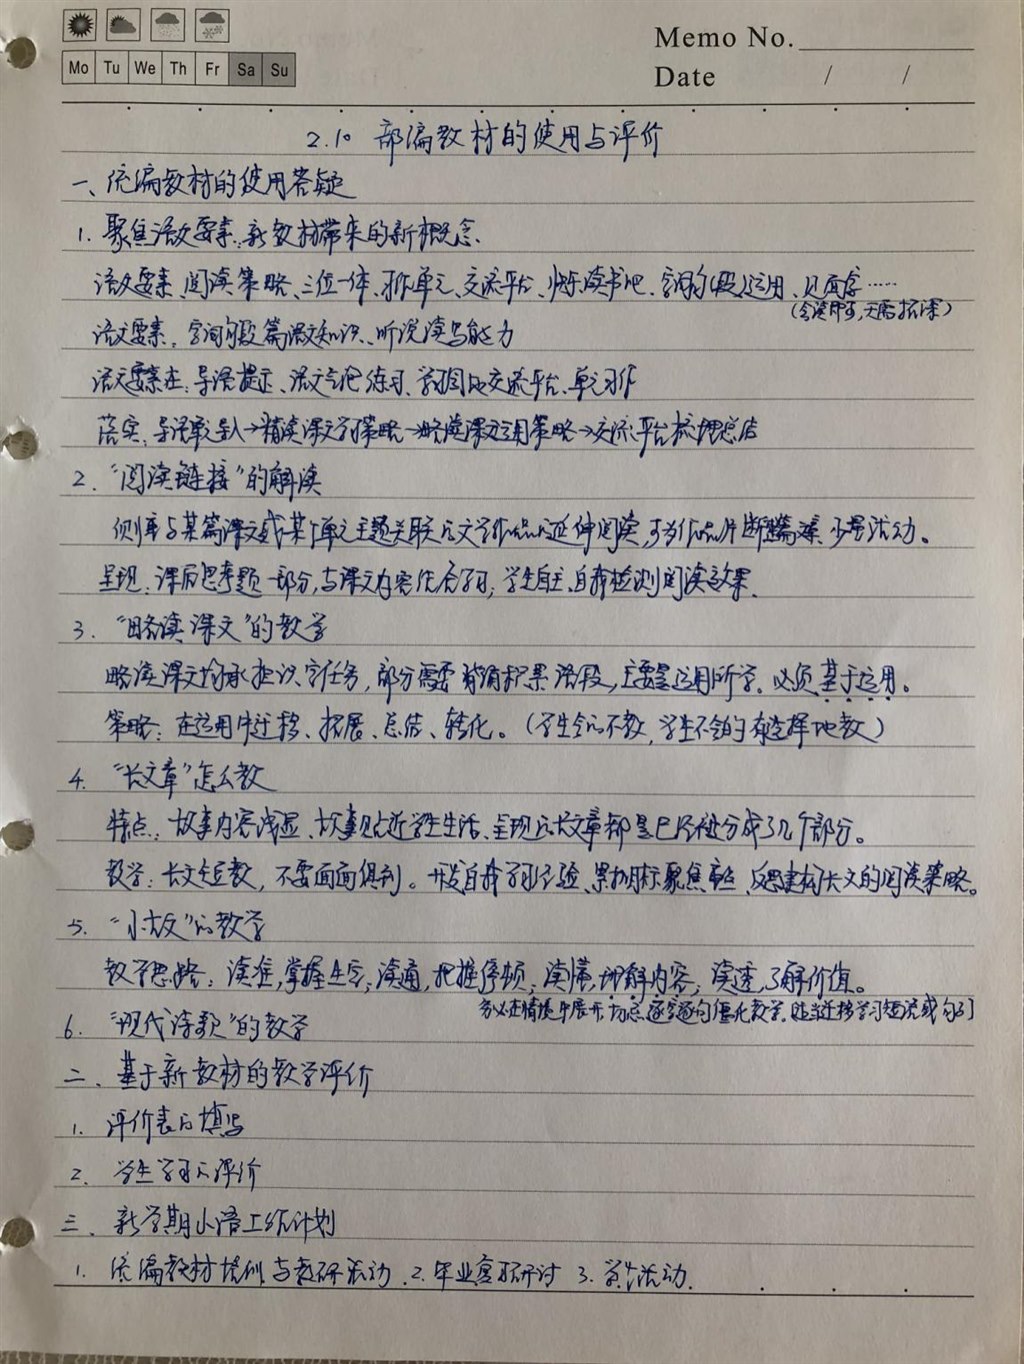 Memo No.
Mo Tu We Th Fr Sa Su
Date / /
2.10 部编教材的使用与评价
一、统编教材的使用答疑
1. 聚焦语文要素:新教材带来的新概念.
语文要素、阅读策略、三位一体、习作单元、交流平台、快乐读书吧、字词句(段)运用、日有所诵……
(会读即可,无需拓深)
语文要素:字词句段篇语文知识、听说读写能力
语文要素在:导语提示、语文气泡练习、语文园地交流平台、单元习作
落实:导语单元导入→精读课文学习策略→略读课文运用策略→交流平台梳理总结
2. “阅读链接”的解读
侧重与某篇课文或某个单元主题关联的文学作品的延伸阅读,可为作品片断、故事、活动。
呈现:课后思考题一部分,与课文内容结合学习;学生自主、自我检测阅读效果.
3. “略读课文”的教学
略读课文均承担识字任务,部分需要背诵积累语段,主要是运用所学。必须基于运用。
策略:在运用中迁移、拓展、总结、转化。(学生会的不教,学生不会的有选择地教)
4. “长文章”怎么教
特点:故事内容浅显、故事贴近学生生活、呈现的长文章都是已经被分成了几个部分。
教学:长文短教,不要面面俱到。开发自我学习经验、紧扣目标聚焦重点、反思建构长文的阅读策略。
5. “小古文”的教学
教学思路:读准,掌握生字;读通,把握停顿;读懂,理解内容;读透,了解价值。
务必在情境中展开,切忌逐字逐句僵化教学.适当迁移学习短语或句子
6. “现代诗歌”的教学
二、基于新教材的教学评价
1. 评价表的填写
2. 学生学习的评价
三、新学期小语工作计划
1. 统编教材培训与教研活动. 2. 毕业复习研讨 3. 学生活动.